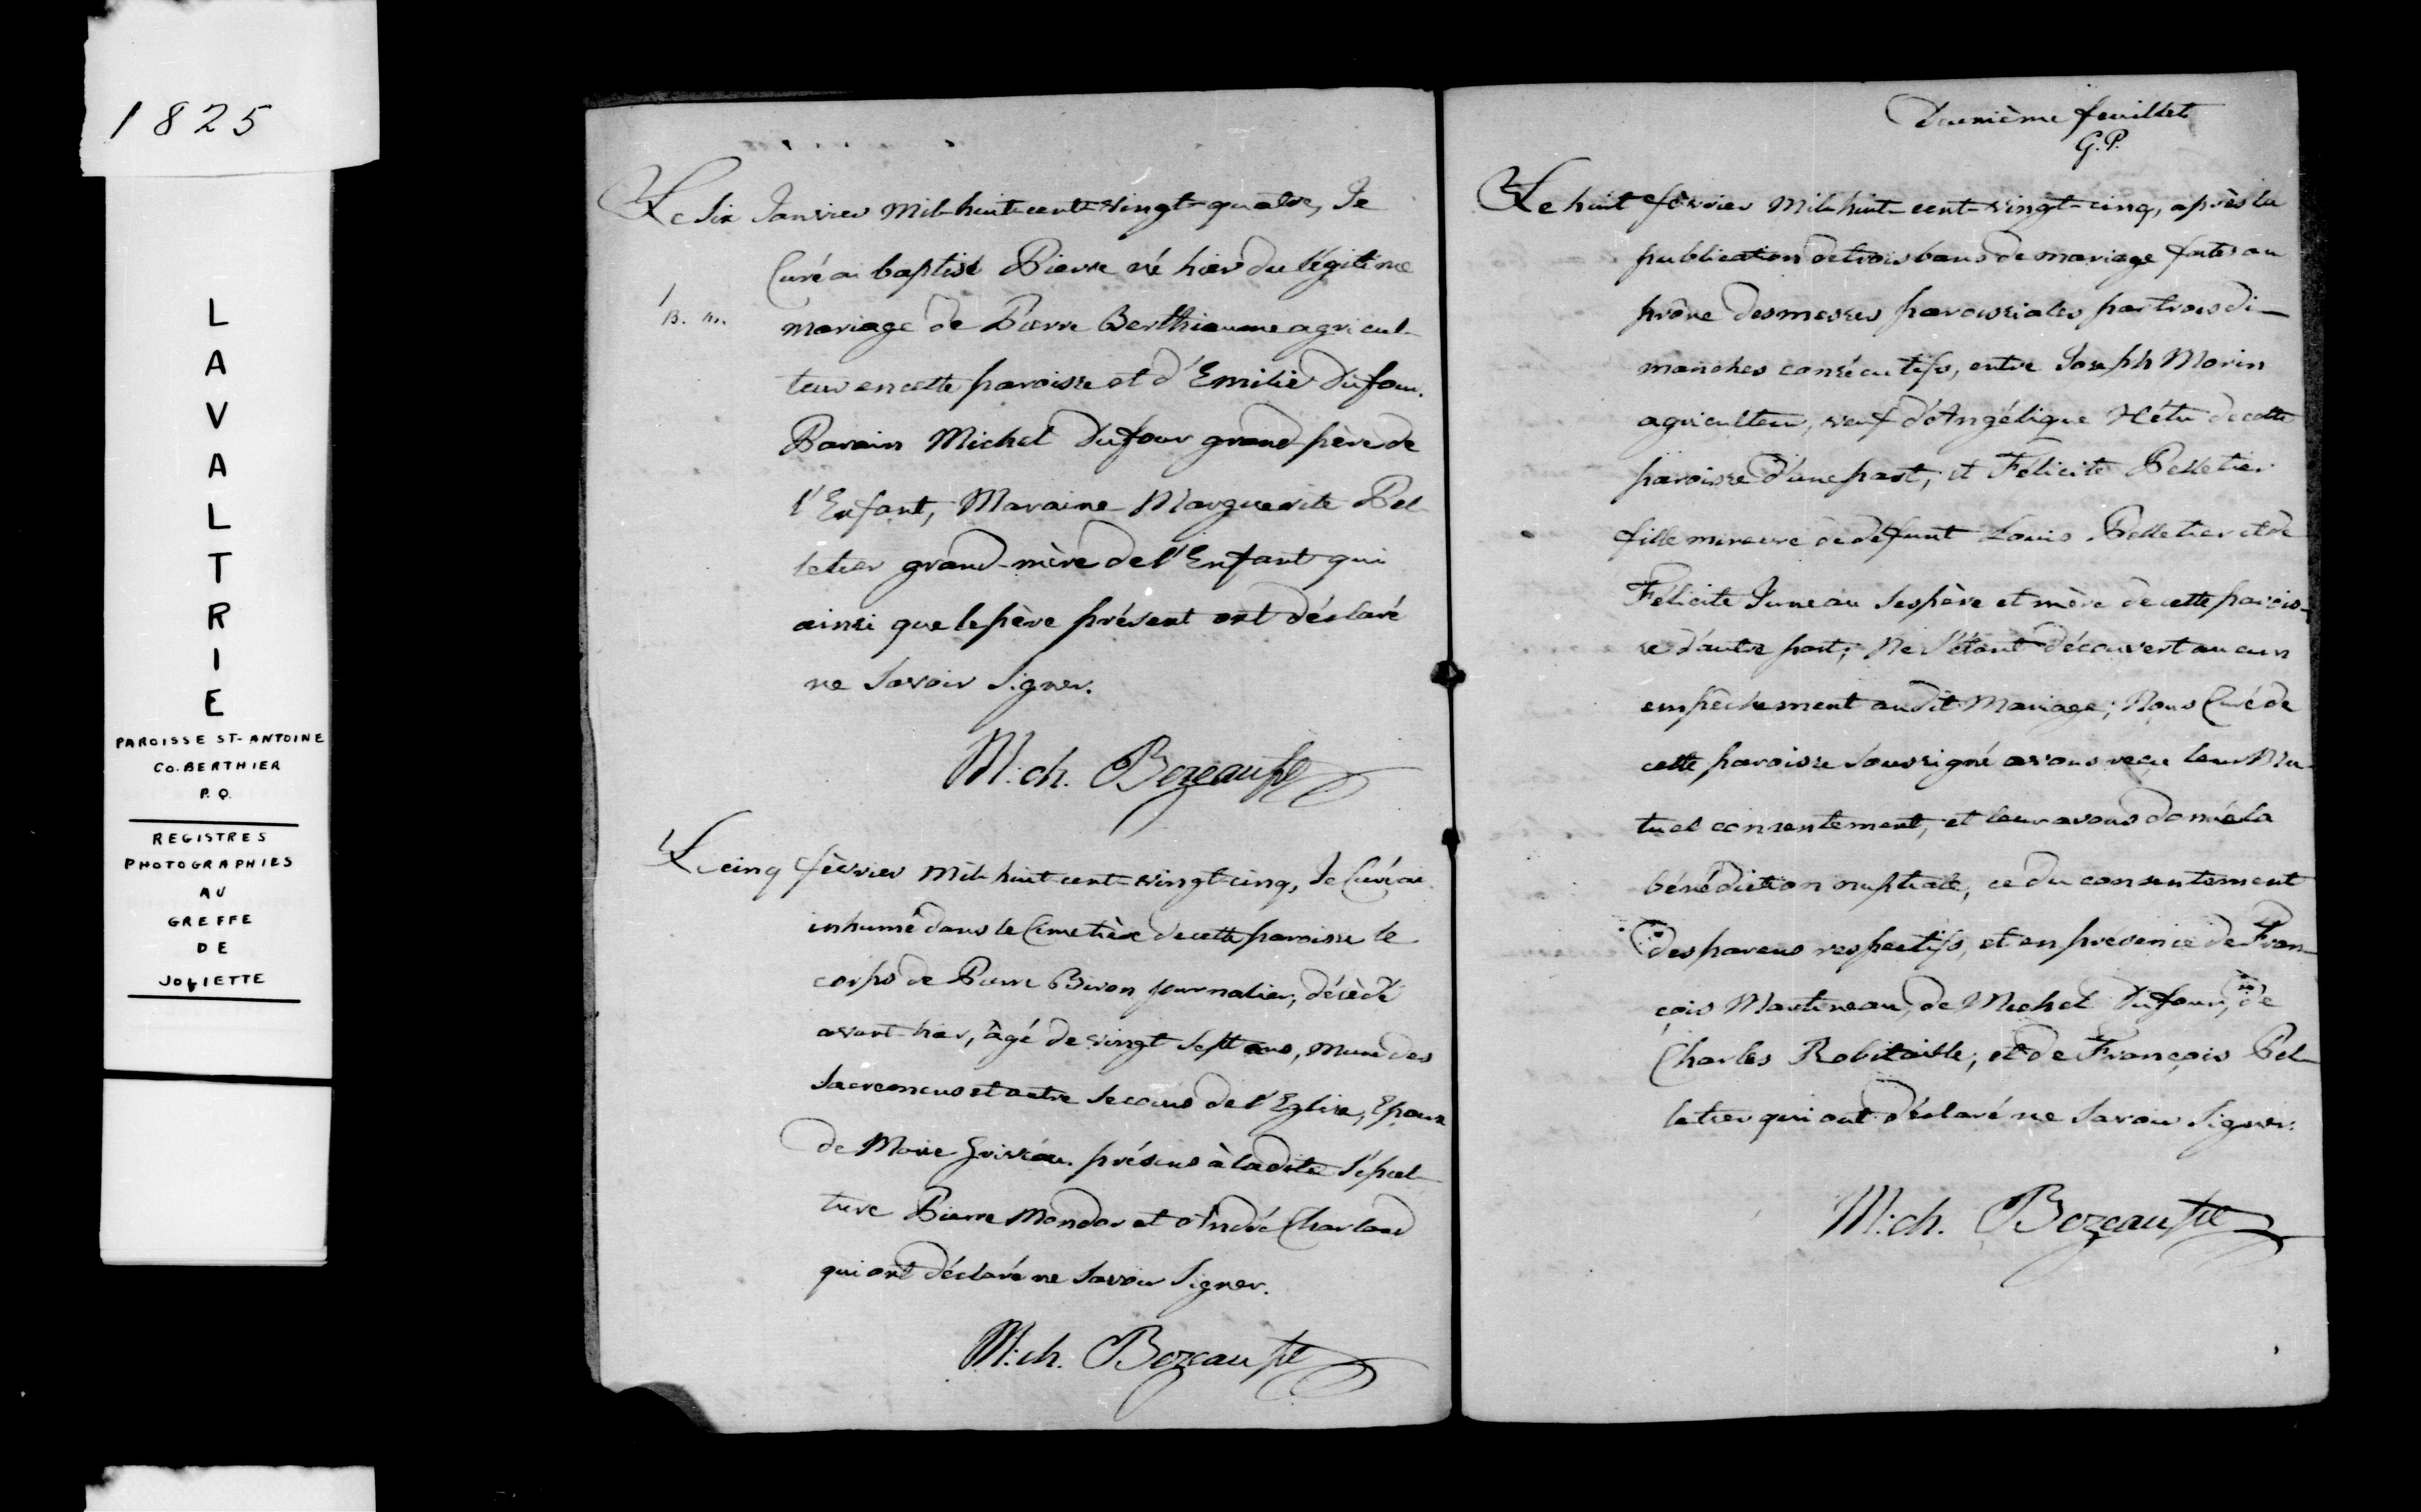 1825
L
A
V
A
L
T
R
I
E
PAROISSE ST-ANTOINE
CO. BERTHIER
P. Q.
REGISTRES
PHOTOGRAPHIES
AU
GREFFE
DE
JOLIETTE
Le Six Janvier Mil-huit-cent-vingt-quatre, Je
Curé ai baptisé Pierre né hier du légitime
1
B. m.
mariage de Pierre Berthiaume agricul-
teur en cette paroisse et d'Emilie Dufour.
Parain Michel Dufour grand-père de
l'Enfant, Maraine Marguerite Pel-
letier grand-mère de l'Enfant qui
ainsi que le père présent ont déclaré
ne Savoir Signer.
M: ch. Bezeau ptre
Le cinq février Mil-huit-cent-vingt-cinq, Je Curé ai
inhumé dans le Cimetière de cette paroisse le
corps de Pierre Biron journalier, décédé
avant-hier, âgé de vingt Sept ans, muni des
Sacremens et autre Secours de l'Eglise, Epoux
de Marie présens à la dite Sépul-
ture Pierre Mondor et André Charland
qui ont déclaré ne Savoir Signer.
M: ch. Bezeau ptre
Deuxième feuillet
G. P.
Le huit février Mil-huit-cent-vingt-cinq, après la
publication de trois bans de mariage faites au
prône des messes paroissiales par trois di-
manches consécutifs, entre Joseph Morin
agriculteur, veuf d'Angélique Hétu de cette
paroisse d'une part; et Félicité Pelletier
fille mineure de défunt Louis Pelletier et de
Félicité Juneau Ses père et mère de cette parois-
se d'autre part; Ne S'étant découvert aucun
empêchement au dit Mariage; Nous Curé de
cette paroisse Soussigné avons reçu leur Mu-
tuel consentement, et leur avons donné la
bénédiction nuptiale, ce du consentement
des parens respectifs, et en présence de Fran-
çois Martineau, de Michel Dufour, de
Charles Robitaille, et de François Pel-
letier qui ont déclaré ne Savoir Signer.
M: ch. Bezeau ptre